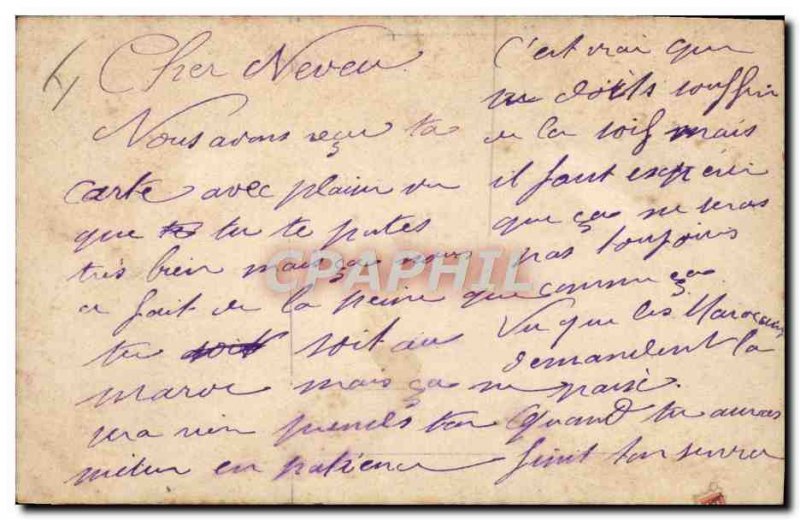 Cher Neveu
Nous avons reçu ta
carte avec plaisir vu
que tu te portes
très bien mais ça nous
a fait de la peine que
tu soit au
maroc mais ça ne
sera rien prends ton
métier en patience
C'est vrai que
tu doits souffrir
de la soif mais
il faut expérir
que ça ne seras
pas toujours
comme ça
Vu que les Marocains
demandent la
paix.
Quand tu auras
finit ton servic
CPAPHIL